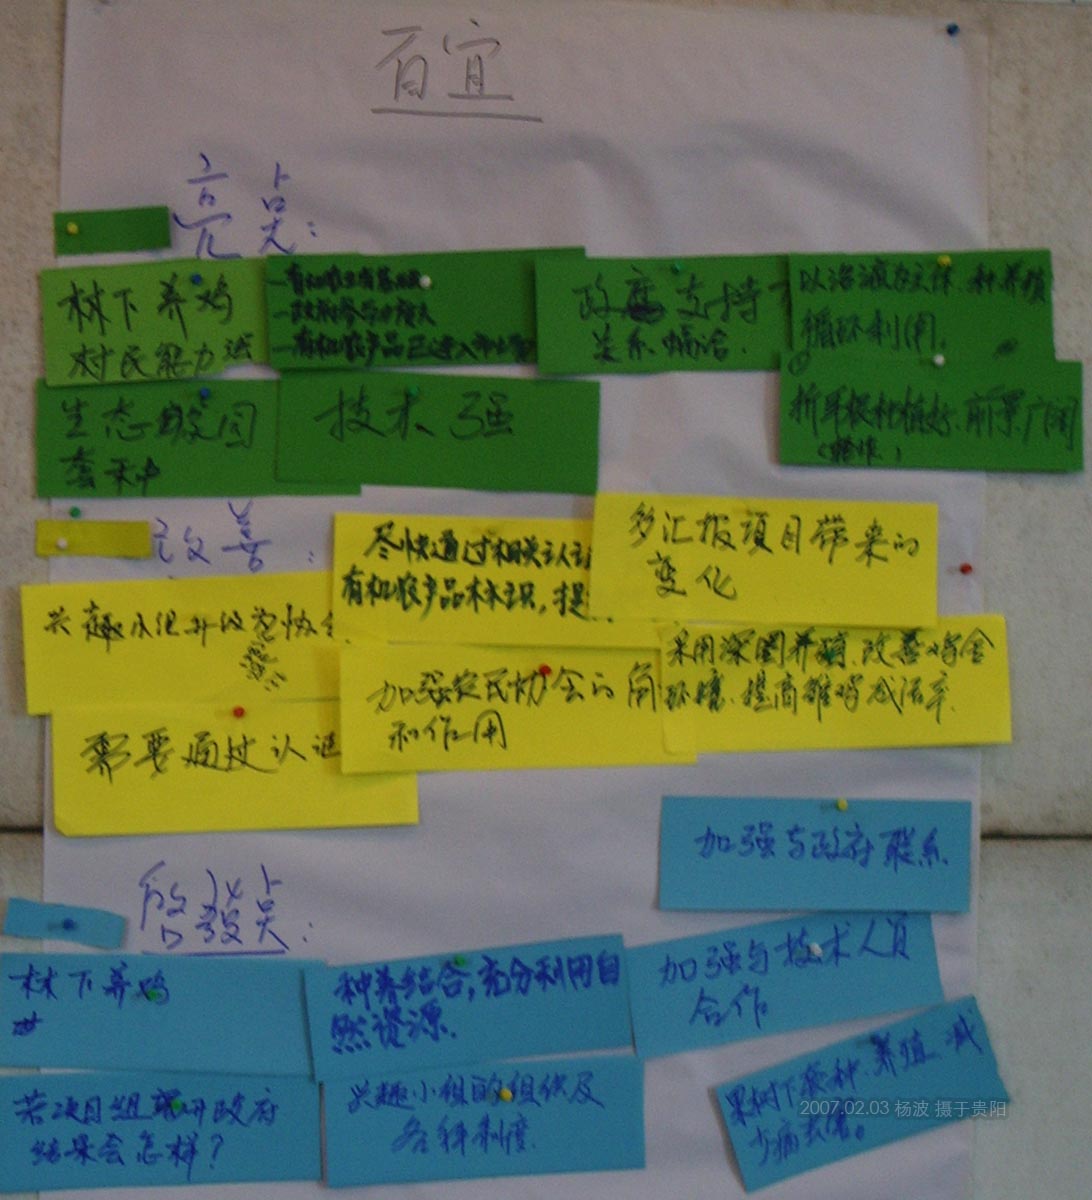 百宜
亮点：
林下养鸡
村民能力
政府支持
关系
以沼液为主体、种养殖
循环利用。
生态
套种
技术强
折耳根种植好、前景广阔
改善：
尽快通过相关
有机农产品标识，提
多汇报项目带来的
变化
兴趣小组升级为协会
采用深圈养殖、改善鸡舍
环境、提高雏鸡成活率
加强农民协会的
和作用
需要通过认证
加强与政府联系
启发点：
林下养鸡
种养结合，充分利用自
然资源.
加强与技术人员
合作
若项目组离开政府
结果会怎样？
兴趣小组的组织及
各种制度
果树下套种、养殖、减
少病虫害。
2007.02.03 杨波 摄于贵阳